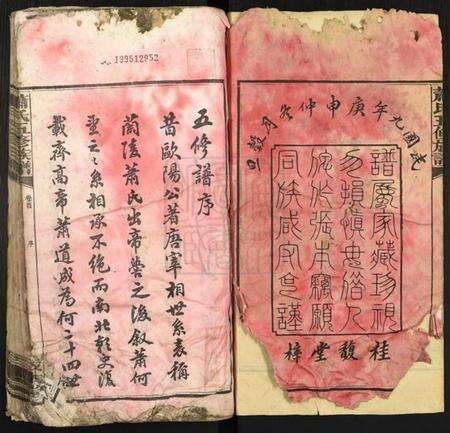 民國九年庚申仲冬月穀旦
譜家藏珍視
勿損慎毋借人
作張本竊願
同族咸守謹
桂馥堂梓
蕭氏五修族譜
199512952
五修譜序
昔歐陽公著唐宰相世系表稱
蘭陵蕭氏出帝嚳之後叙蕭何
望之之系相承不絕而南北朝史復
載齊高帝蕭道成為何二十四世
蕭氏五修族譜
卷首
序